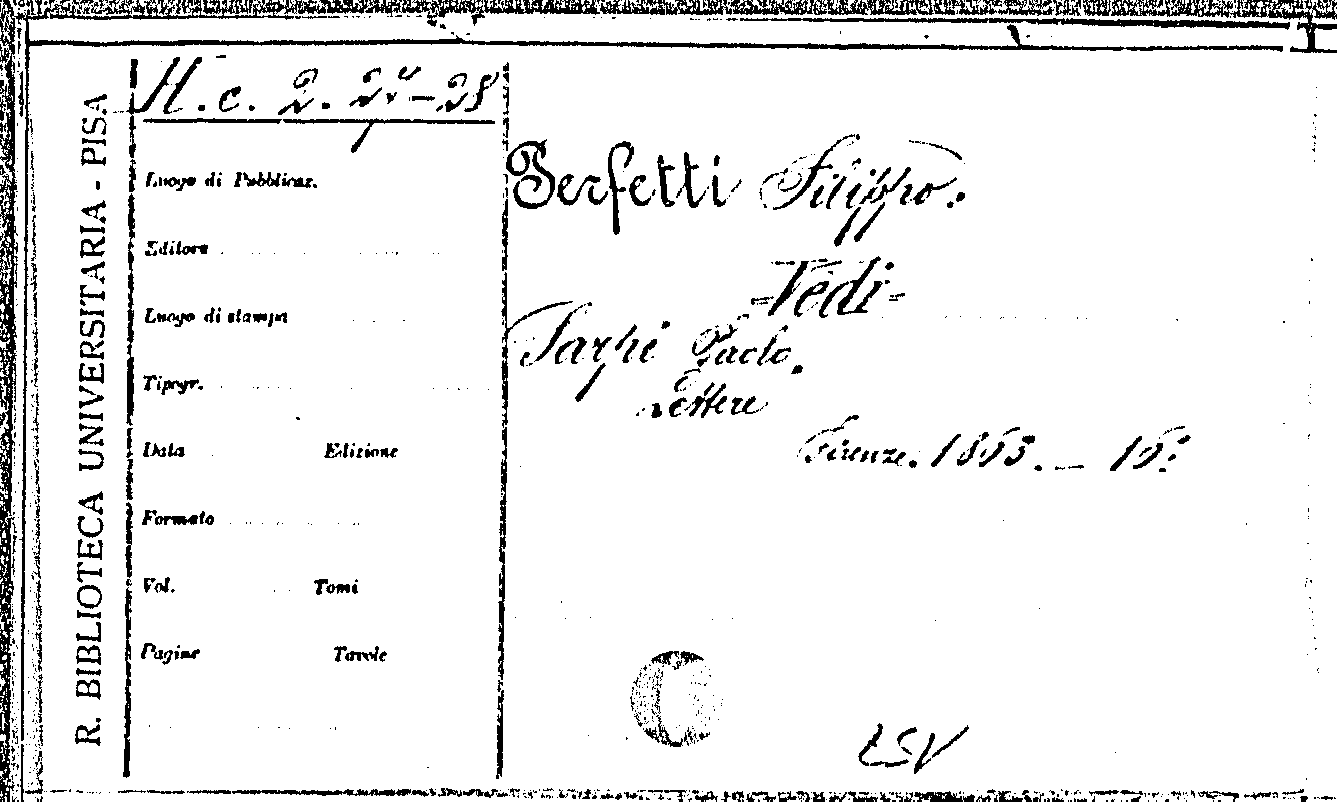 R. BIBLIOTECA UNIVERSITARIA - PISA
H. c. 2. 27-28
Luogo di Pubblicaz.
Editore
Luogo di stampa
Tipogr.
Data Edizione
Formato
Vol. Tomi
Pagine Tavole
Perfetti Filippo.
=Vedi=
Sarpi Paolo.
Lettere
Firenze. 1863. — 16º